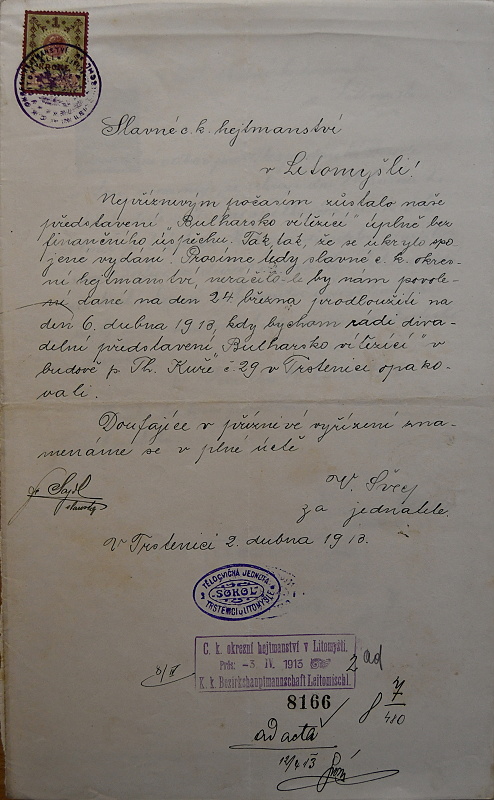 1
Slavné c. k. hejtmanství
v Litomyšli!
Nepříznivým počasím zůstalo naše
představení „Bulharsko vítězící" úplně bez
finančního úspěchu. Tak tak, že se ukrylo spo
jené vydání. Prosíme tedy slavné c. k. okres-
ní hejtmanství, neráčilo-li by nám povole-
ní dané na den 24 března prodloužiti na
den 6. dubna 1913, kdy bychom rádi diva-
delní představení „Bulharsko vítězící" v
budově p. Th. Kuře č. 29 v Trstenici opako-
vali.
Doufajíce v příznivé vyřízení zna-
menáme se v plné úctě
V. Švec
za jednatele.
starosta
V Trstenici 2. dubna 1913.
TĚLOCVIČNÁ JEDNOTA
"SOKOL"
C. k. okresní hejtmanství v Litomyšli.
Präs: -3 IV. 1913
K. k. Bezirkshauptmannschaft Leitomischl.
2 ad
8166
8 7/410
ad acta
12/4 13